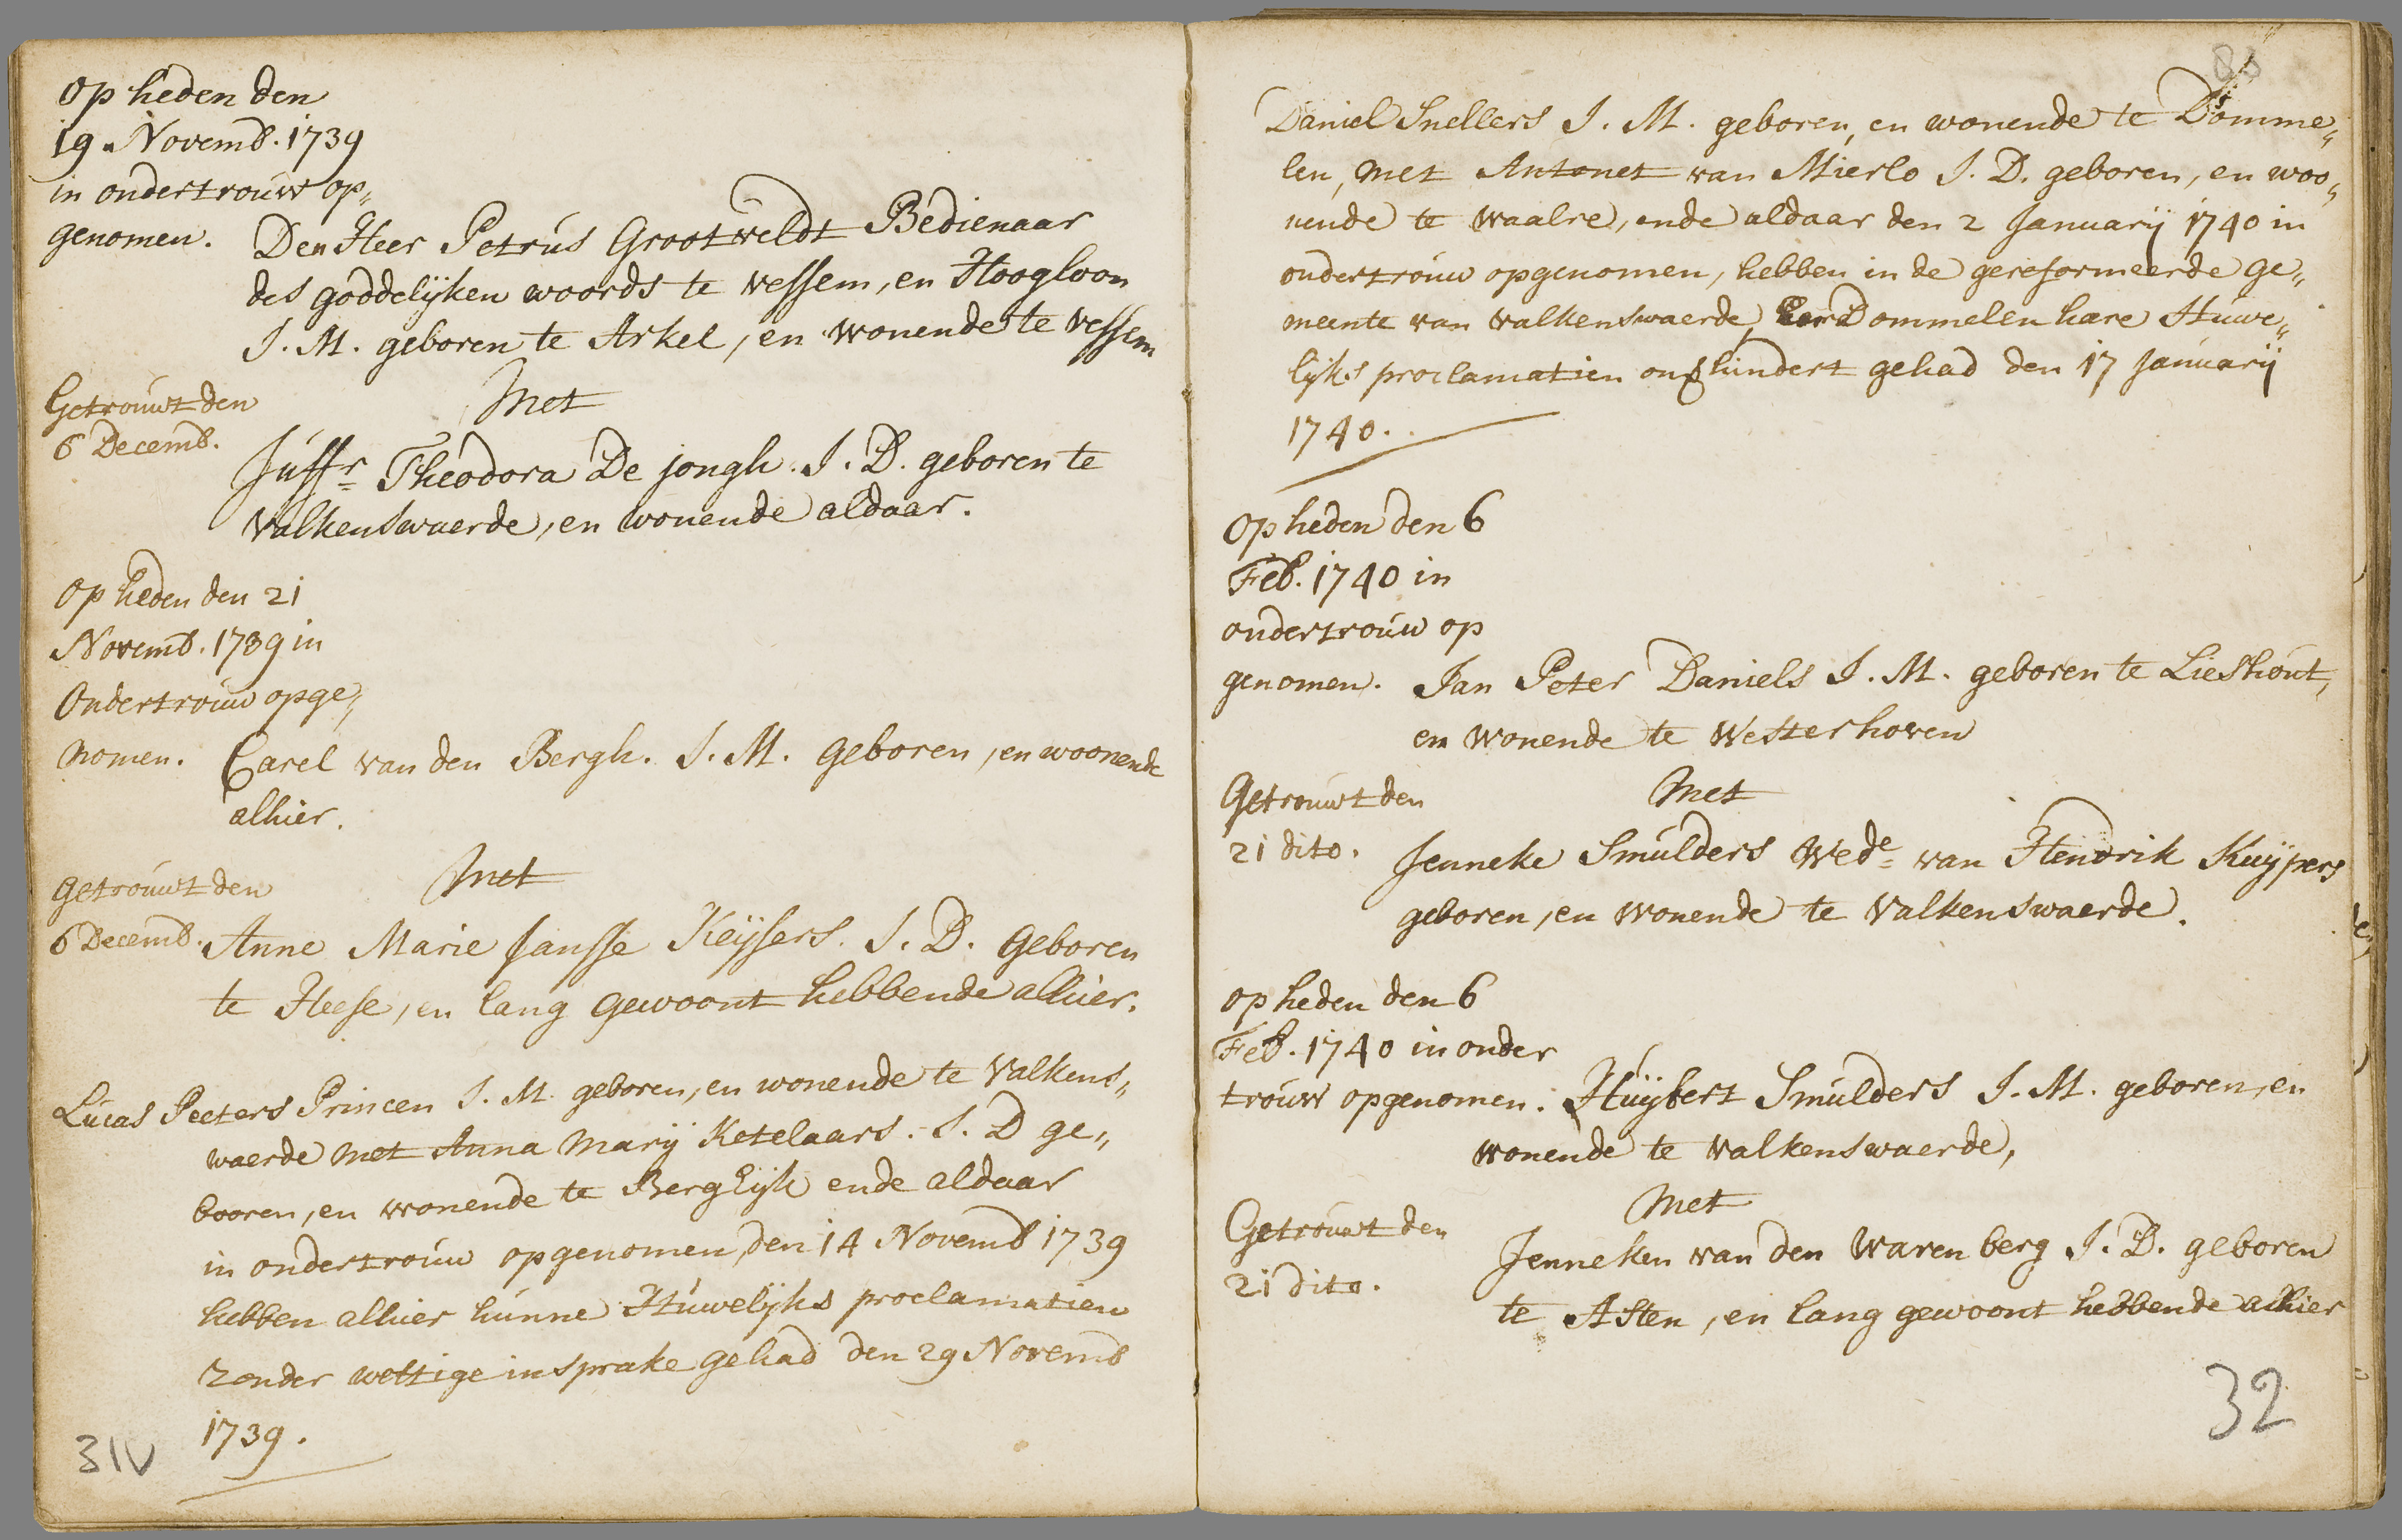 Op heden den
19 Novemb. 1739
in ondertrouw op„
genomen. Den Heer Petrus Grootveldt Bedienaar
des goddelijken woords te Vessem, en Hoogloon
J. M. geboren te Arkel, en wonende te Vessem
Getrouwt den
6 Decemb.
Met
Juffr Theodora De jongh. J. D. geboren te
Valkenswaerde, en wonende aldaar.
Op heden den 21
Novemb. 1739 in
Ondertrouw opge„
nomen. Carel van den Bergh. J. M. geboren, en woonende
alhier.
getrouwt den
met
6 Decemb. Anne Marie Jansse Keijsers. J. D. geboren
te Heese, en lang gewoont hebbende alhier.
Lucas Peeters Princen J. M. geboren, en wonende te Valkens„
waerde met Anna Marij Ketelaars. J. D ge„
booren, en wonende te Bergeijk ende aldaar
in ondertrouw opgenomen den 14 Novemb 1739
hebben alhier hunne Huwelijks proclamatien
zonder wettige insprake gehad den 29 Novemb
1739.
31V
Daniel Snellers J. M. geboren, en wonende te Domme„
len, met Antonet van Mierlo J. D. geboren, en woo„
nende te Waalre, ende aldaar den 2 Januarij 1740 in
ondertrouw opgenomen, hebben in de gereformeerde ge„
meente van Valkenswaerde, Dommelen hare Huwe„
lijks proclamatien onghindert gehad den 17 Januarij
1740.
Op heden den 6
Feb. 1740 in
ondertrouw op
genomen. Jan Peter Daniels J. M. geboren te Lieshout,
en wonende te Westerhoven
Getrouwt den
met
21 dito. Jenneke Smulders Wede van Hendrik Kuijpers
geboren, en wonende te Valkenswaerde.
op heden den 6
Feb. 1740 in onder
trouw opgenomen. Huijbert Smulders J. M. geboren, en
wonende te Valkenswaerde,
met
Getrouwt den
21 dito.
Jenneken van den Warenberg J. D. geboren
te Asten, en lang gewoont hebbende alhier
32